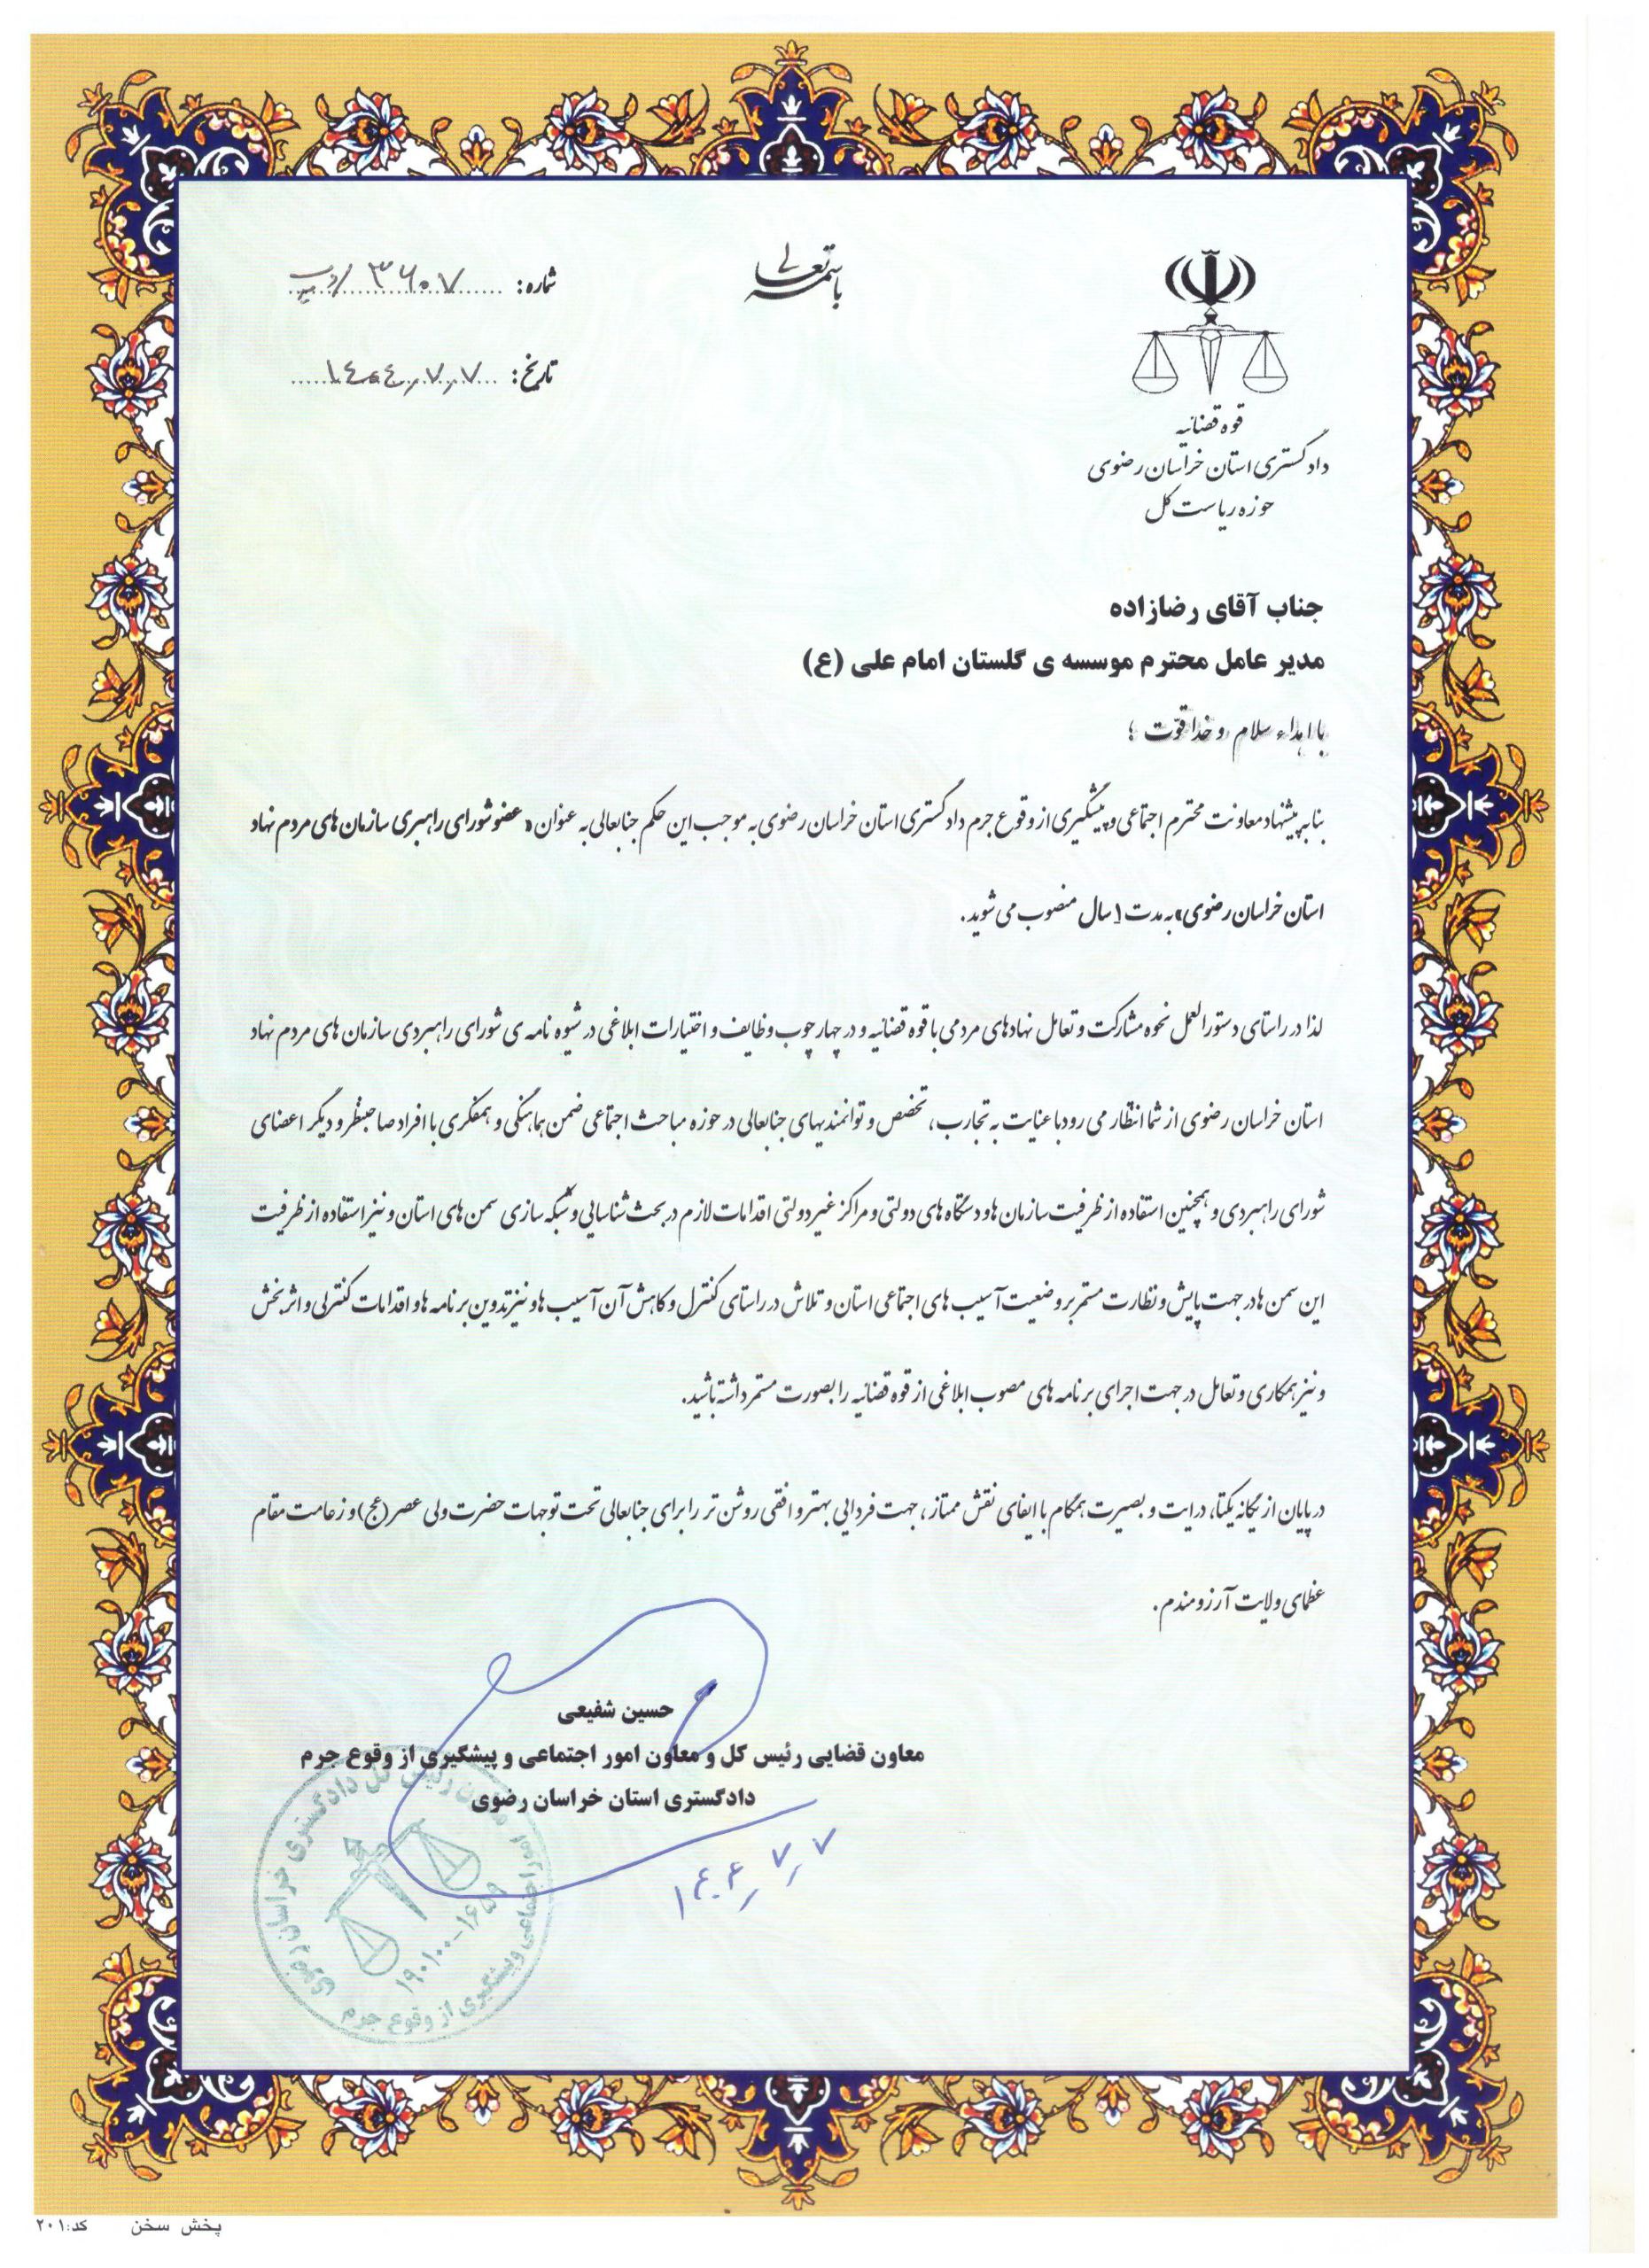 باسمه تعالی
قوه قضائیه
دادگستری استان خراسان رضوی
حوزه ریاست کل
شماره: ۳۶۰۷/
تاریخ: ۱۴۰۴,۷,۷
جناب آقای رضازاده
مدیر عامل محترم موسسه ی گلستان امام علی (ع)
با اهداء سلام و خدا قوت ؛
بنا به پیشنهاد معاونت محترم اجتماعی و پیشگیری از وقوع جرم دادگستری استان خراسان رضوی به موجب این حکم جنابعالی به عنوان « عضو شورای راهبری سازمان های مردم نهاد
استان خراسان رضوی» به مدت ۱ سال منصوب می شوید.
لذا در راستای دستورالعمل نحوه مشارکت و تعامل نهادهای مردمی با قوه قضائیه و در چهارچوب وظایف و اختیارات ابلاغی در شیوه نامه ی شورای راهبردی سازمان های مردم نهاد
استان خراسان رضوی از شما انتظار می رود با عنایت به تجارب، تخصص و توانمندیهای جنابعالی در حوزه مباحث اجتماعی ضمن هماهنگی و همفکری با افراد صاحبنظر و دیگر اعضای
شورای راهبردی و همچنین استفاده از ظرفیت سازمان ها و دستگاه های دولتی و مراکز غیر دولتی اقدامات لازم در بحث شناسایی و شبکه سازی سمن های استان و نیز استفاده از ظرفیت
این سمن ها در جهت پایش و نظارت مستمر بر وضعیت آسیب های اجتماعی استان و تلاش در راستای کنترل و کاهش آن آسیب ها و نیز تدوین برنامه ها و اقدامات کنترلی و اثر بخش
و نیز همکاری و تعامل در جهت اجرای برنامه های مصوب ابلاغی از قوه قضائیه را بصورت مستمر داشته باشید.
در پایان از یگانه یکتا، درایت و بصیرت همگام با ایفای نقش ممتاز ، جهت فردایی بهتر و افقی روشن تر را برای جنابعالی تحت توجهات حضرت ولی عصر (عج) و زعامت مقام
عظمای ولایت آرزومندم.
حسین شفیعی
معاون قضایی رئیس کل و معاون امور اجتماعی و پیشگیری از وقوع جرم
دادگستری استان خراسان رضوی
۱۴۰۴,۷,۷
رئیس کل دادگستری خراسان رضوی
اجتماعی و پیشگیری از وقوع جرم
۱۹۰۱۰۰-۱۶۵۹
پخش سخن کد:۲۰۱